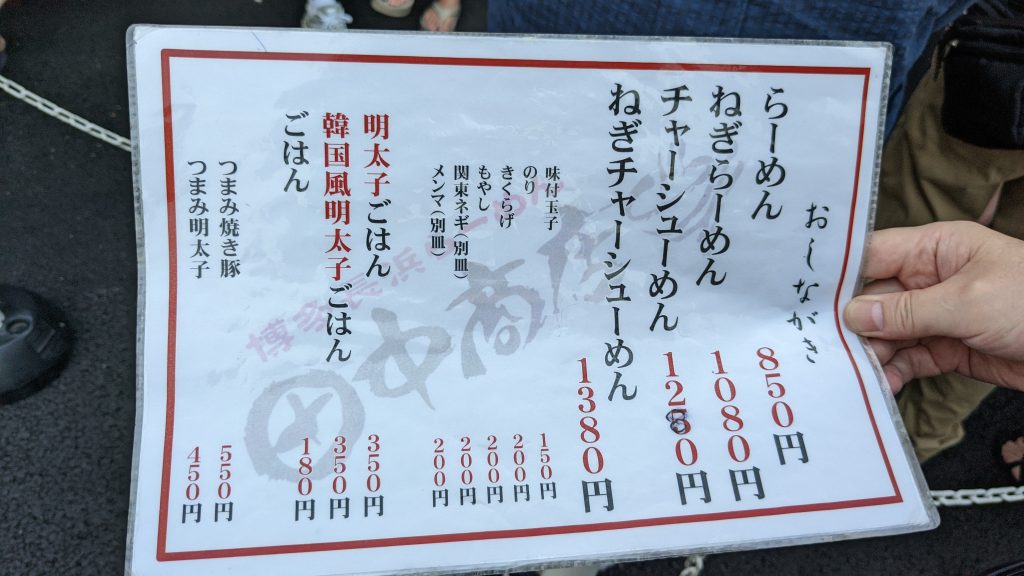 おしながき
らーめん 850円
ねぎらーめん 1080円
チャーシューめん 1280円
ねぎチャーシューめん 1380円
味付玉子
のり
きくらげ
もやし
関東ネギ(別皿)
メンマ(別皿)
150円
200円
200円
200円
200円
明太子ごはん 350円
韓国風明太子ごはん 350円
ごはん 180円
つまみ焼き豚 550円
つまみ明太子 450円
博多長浜らーめん
田中商店